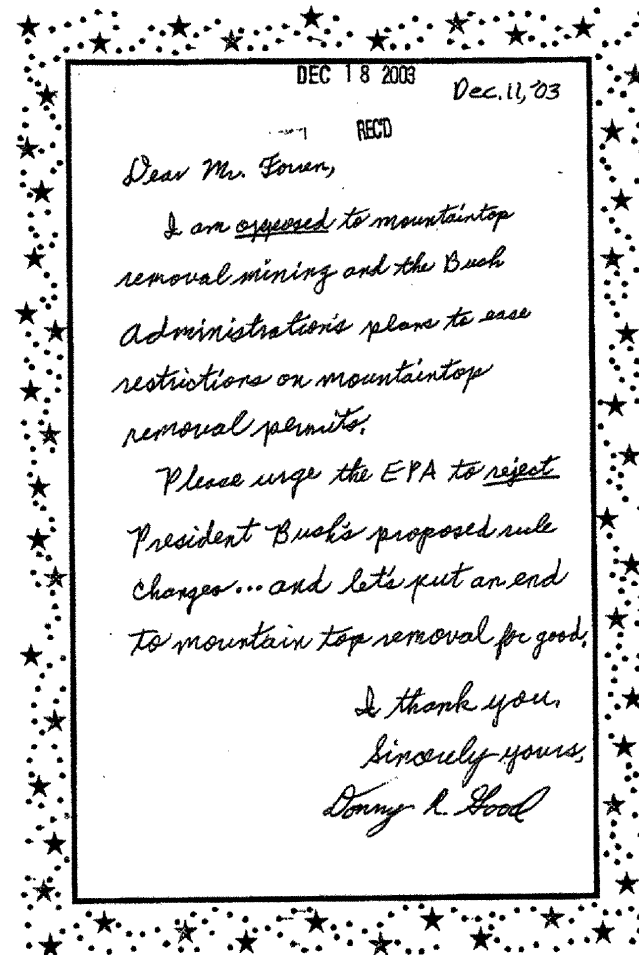 DEC 18 2003
Dec. 11, '03
REC'D
Dear Mr. Forren,
I am opposed to mountaintop
removal mining and the Bush
Administration's plans to ease
restrictions on mountaintop
removal permits.
Please urge the EPA to reject
President Bush's proposed rule
changes... and let's put an end
to mountain top removal for good.
I thank you.
Sincerely yours,
Donny R. Good